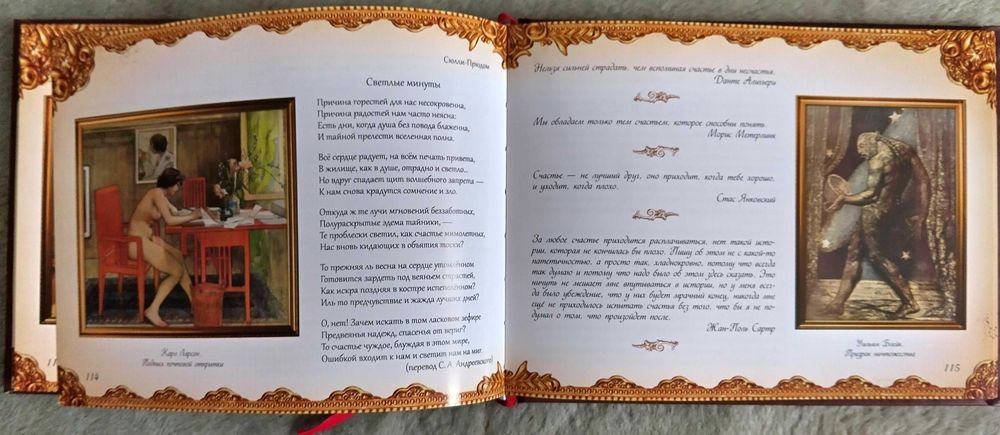 Сюлли-Прюдом
Светлые минуты
Причина горестей для нас несокровенна,
Причина радостей нам часто неясна:
Есть дни, когда душа без повода блаженна,
И тайной прелести вселенная полна.
Всё сердце радует, на всём печать привета,
В жилище, как в душе, отрадно и светло..
Но вдруг спадает щит волшебного запрета —
К нам снова крадутся сомнение и зло.
Откуда ж те лучи мгновений беззаботных,
Полураскрытые эдема тайники, —
Те проблески светил, как счастье мимолетных,
Нас вновь кидающих в объятия тоски?
То прежняя ль весна на сердце утомлённом
Готовится зардеть под веяньем страстей,
Как искра поздняя в костре испепелённом?
Иль то предчувствие и жажда лучших дней?
О, нет! Зачем искать в том ласковом зефире
Предвенья надежд, спасенья от вериг?
То счастье чуждое, блуждая в этом мире,
Ошибкой входит к нам и светит нам на миг.
(перевод С. А. Андреевского)
Карл Ларсон.
Подпись почтовой открытки
114
Нельзя сильней страдать, чем вспоминая счастье в дни несчастья.
Данте Алигьери
Мы обладаем только тем счастьем, которое способны понять.
Морис Метерлинк
Счастье — не лучший друг, оно приходит, когда тебе хорошо,
и уходит, когда плохо.
Стас Янковский
За любое счастье приходится расплачиваться, нет такой исто-
рии, которая не кончилась бы плохо. Пишу об этом не с какой-то
патетичностью, а просто так, хладнокровно, потому что всегда
так думаю и потому что надо было об этом здесь сказать. Это
ничуть не мешает мне впутываться в истории, но у меня всег-
да было убеждение, что у них будет мрачный конец, никогда мне
еще не приходилось испытать счастья без того, что бы я не по-
думал о том, что произойдет после.
Жан-Поль Сартр
Уильям Блэйк.
Призрак ничтожества
115